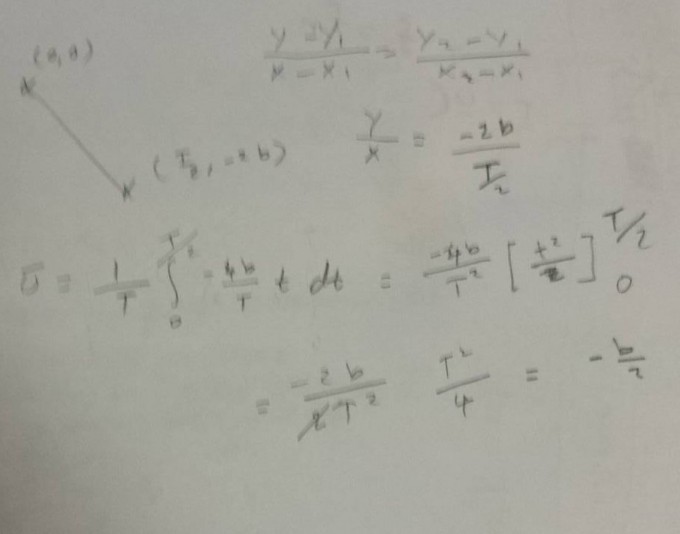 (0,0)
y-y₁/x-x₁ = y₂-y₁/x₂-x₁
(T/2, -2b)
y/x = -2b/T/2
ū = 1/T ∫₀^{T/2} -4b/T t dt = -4b/T² [t²/2]₀^{T/2}
= -2b/T² T²/4 = -b/2